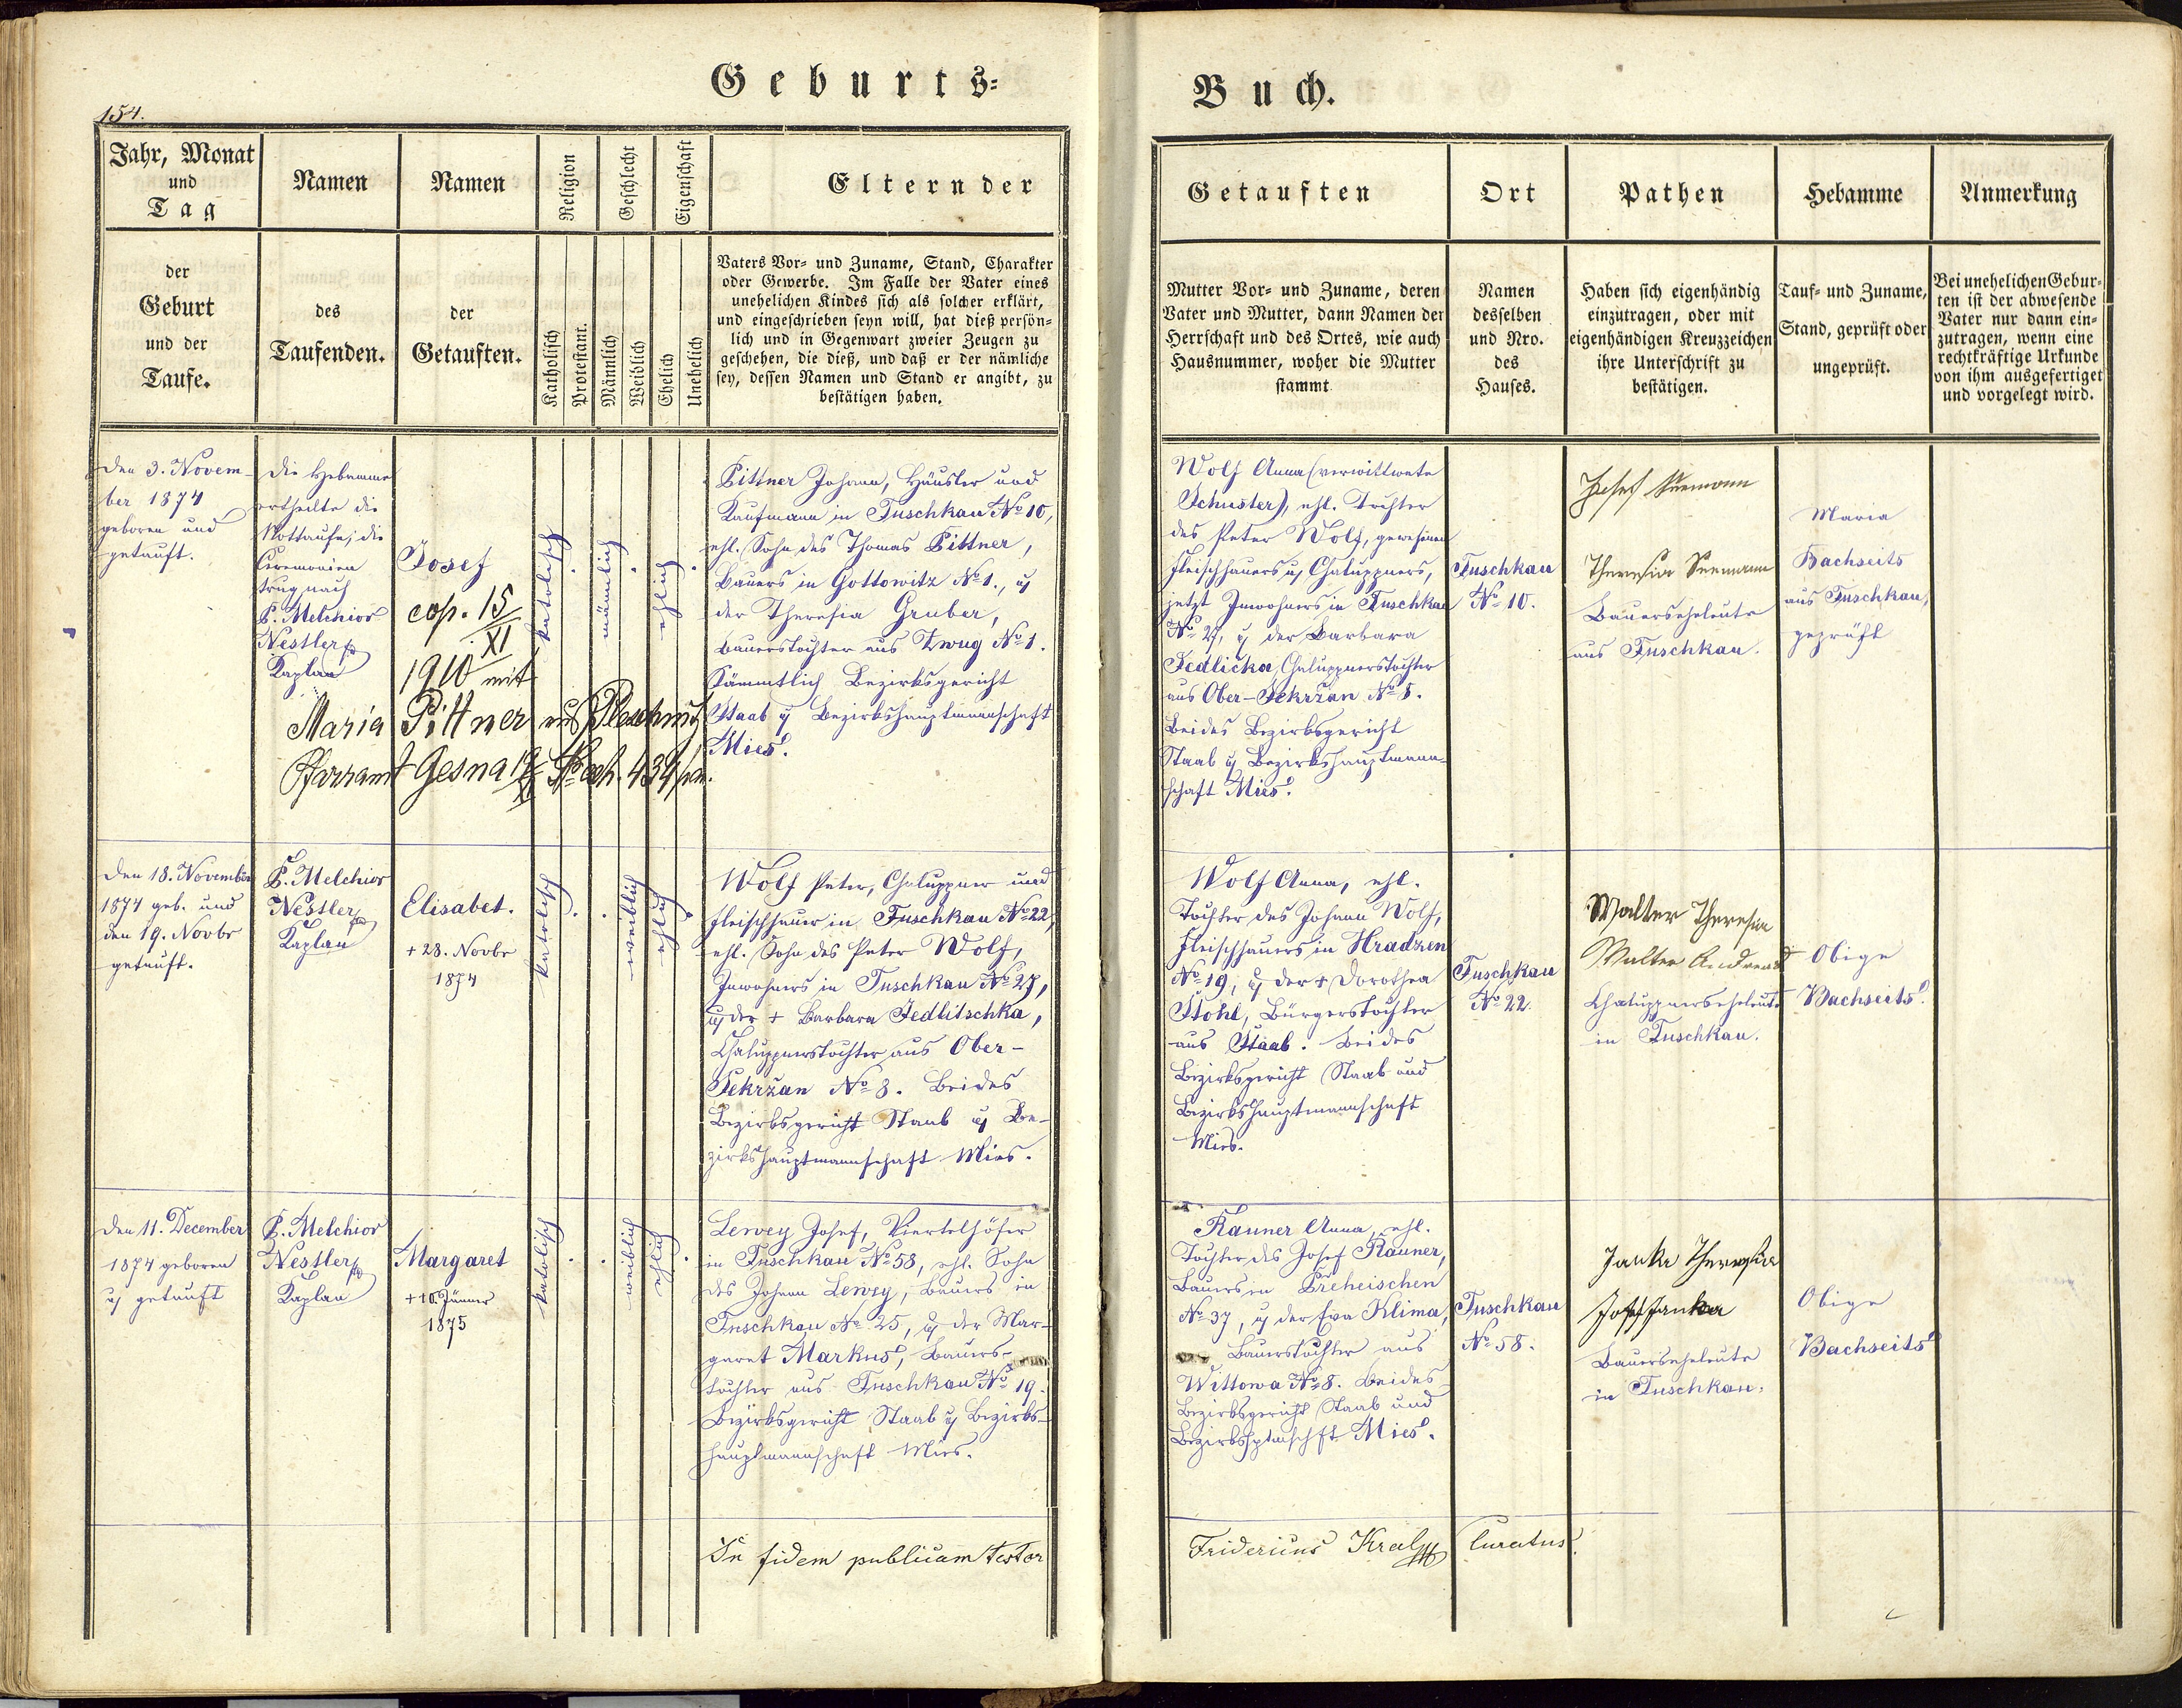 Geburts=
Buch.
154.
Jahr, Monat
und
Tag
Namen
Namen
Religion
Geschlecht
Eigenschaft
Eltern der
der
Geburt
und der
Taufe.
des
Taufenden.
der
Getauften.
Katholisch
Protestant.
Männlich
Weiblich
Ehelich
Unehelich
Vaters Vor= und Zuname, Stand, Charakter
oder Gewerbe. Im Falle der Vater eines
unehelichen Kindes sich als solcher erklärt,
und eingeschrieben seyn will, hat dieß persön=
lich und in Gegenwart zweier Zeugen zu
geschehen, die dieß, und daß er der nämliche
sey, dessen Namen und Stand er angibt, zu
bestätigen haben.
Getauften
Ort
Pathen
Hebamme
Anmerkung
Mutter Vor= und Zuname, deren
Vater und Mutter, dann Namen der
Herrschaft und des Ortes, wie auch
Hausnummer, woher die Mutter
stammt.
Namen
desselben
und Nro.
des
Hauses.
Haben sich eigenhändig
einzutragen, oder mit
eigenhändigen Kreuzzeichen
ihre Unterschrift zu
bestätigen.
Tauf= und Zuname,
Stand, geprüft oder
ungeprüft.
Bei unehelichen Gebur=
ten ist der abwesende
Vater nur dann ein=
zutragen, wenn eine
rechtkräftige Urkunde
von ihm ausgefertiget
und vorgelegt wird.
den 3. Novem-
ber 1874
geboren und
getauft.
die Hebamme
ertheilte die
Nottaufe; die
Ceremonien
trug nach
P. Melchior
Nestler
Kaplan
Josef
cop. 15/XI
1910 mit
Maria Pittner aus
Pfarramt Gesna
katolisch
männlich
ehlich
Pittner Johann, Häusler und
Kaufmann in Tuschkau No 10,
ehl. Sohn des Thomas Pittner,
Bauers in Gottowitz No 1., u
der Theresia Gruber,
Bauerstochter aus Zwug No 1.
Sämmtlich Bezirksgericht
Staab u Bezirkshauptmannschaft
Mies.
Wolf Anna (verwittwete
Schuster), ehl. Tochter
des Peter Wolf, gewesenen
Fleischhauers u, Chaluppners,
jetzt Inwohners in Tuschkau
No 27, u der Barbara
Jedlicka, Chaluppnerstochter
aus Ober-Sekržan No 8.
Beides Bezirksgericht
Staab u Bezirkshauptmann-
schaft Mies.
Tuschkau
No 10.
Josef Seemann
Theresia Seemann
Bauerseheleute
aus Tuschkau.
Maria
Bachseits
aus Tuschkau,
geprüft
den 18. November
1874 geb. und
den 19. Novbr
getauft.
P. Melchior
Nestler
Kaplan
Elisabet.
+ 28. Novbr
1874
katolisch
weiblich
ehlich
Wolf Peter, Chaluppner und
Fleischhauer in Tuschkau No 22,
ehl. Sohn des Peter Wolf,
Inwohners in Tuschkau No 27,
u der + Barbara Jedlitschka,
Chaluppnerstochter aus Ober-
Sekržan No 8. Beides
Bezirksgericht Staab u Be-
zirkshauptmannschaft Mies.
Wolf Anna, ehl.
Tochter des Johann Wolf,
Fleischhauers in Hradzen
No 19, u der + Dorothea
Stohl, Bürgerstochter
aus Staab. Beides
Bezirksgericht Staab und
Bezirkshauptmannschaft
Mies.
Tuschkau
No 22.
Walter Theresia
Walter Andreas
Chaluppnerseheleute
in Tuschkau.
Obige
Bachseits.
den 11. December
1874 geboren
u getauft
P. Melchior
Nestler
Kaplan
Margaret
+ 10. Jänner
1875
katolisch
weiblich
ehlich
Lewey Josef, Viertelhöfer
in Tuschkau No 58, ehl. Sohn
des Johann Lewey, Bauers in
Tuschkau No 25, u der Mar-
garet Markus, Bauers-
tochter aus Tuschkau No 19.
Bezirksgericht Staab u Bezirks-
hauptmannschaft Mies.
Rauner Anna, ehl.
Tochter des Josef Rauner,
Bauers in Preheischen
No 37, u der Eva Klima,
Bauerstochter aus
Wittowa No 8. Beides
Bezirksgericht Staab und
Bezirkshptmschft Mies.
Tuschkau
No 58.
Janka Theresia
Josef Janka
Bauerseheleute
in Tuschkau.
Obige
Bachseits
In fidem publicam testor
Fridericus Kral Curatus.